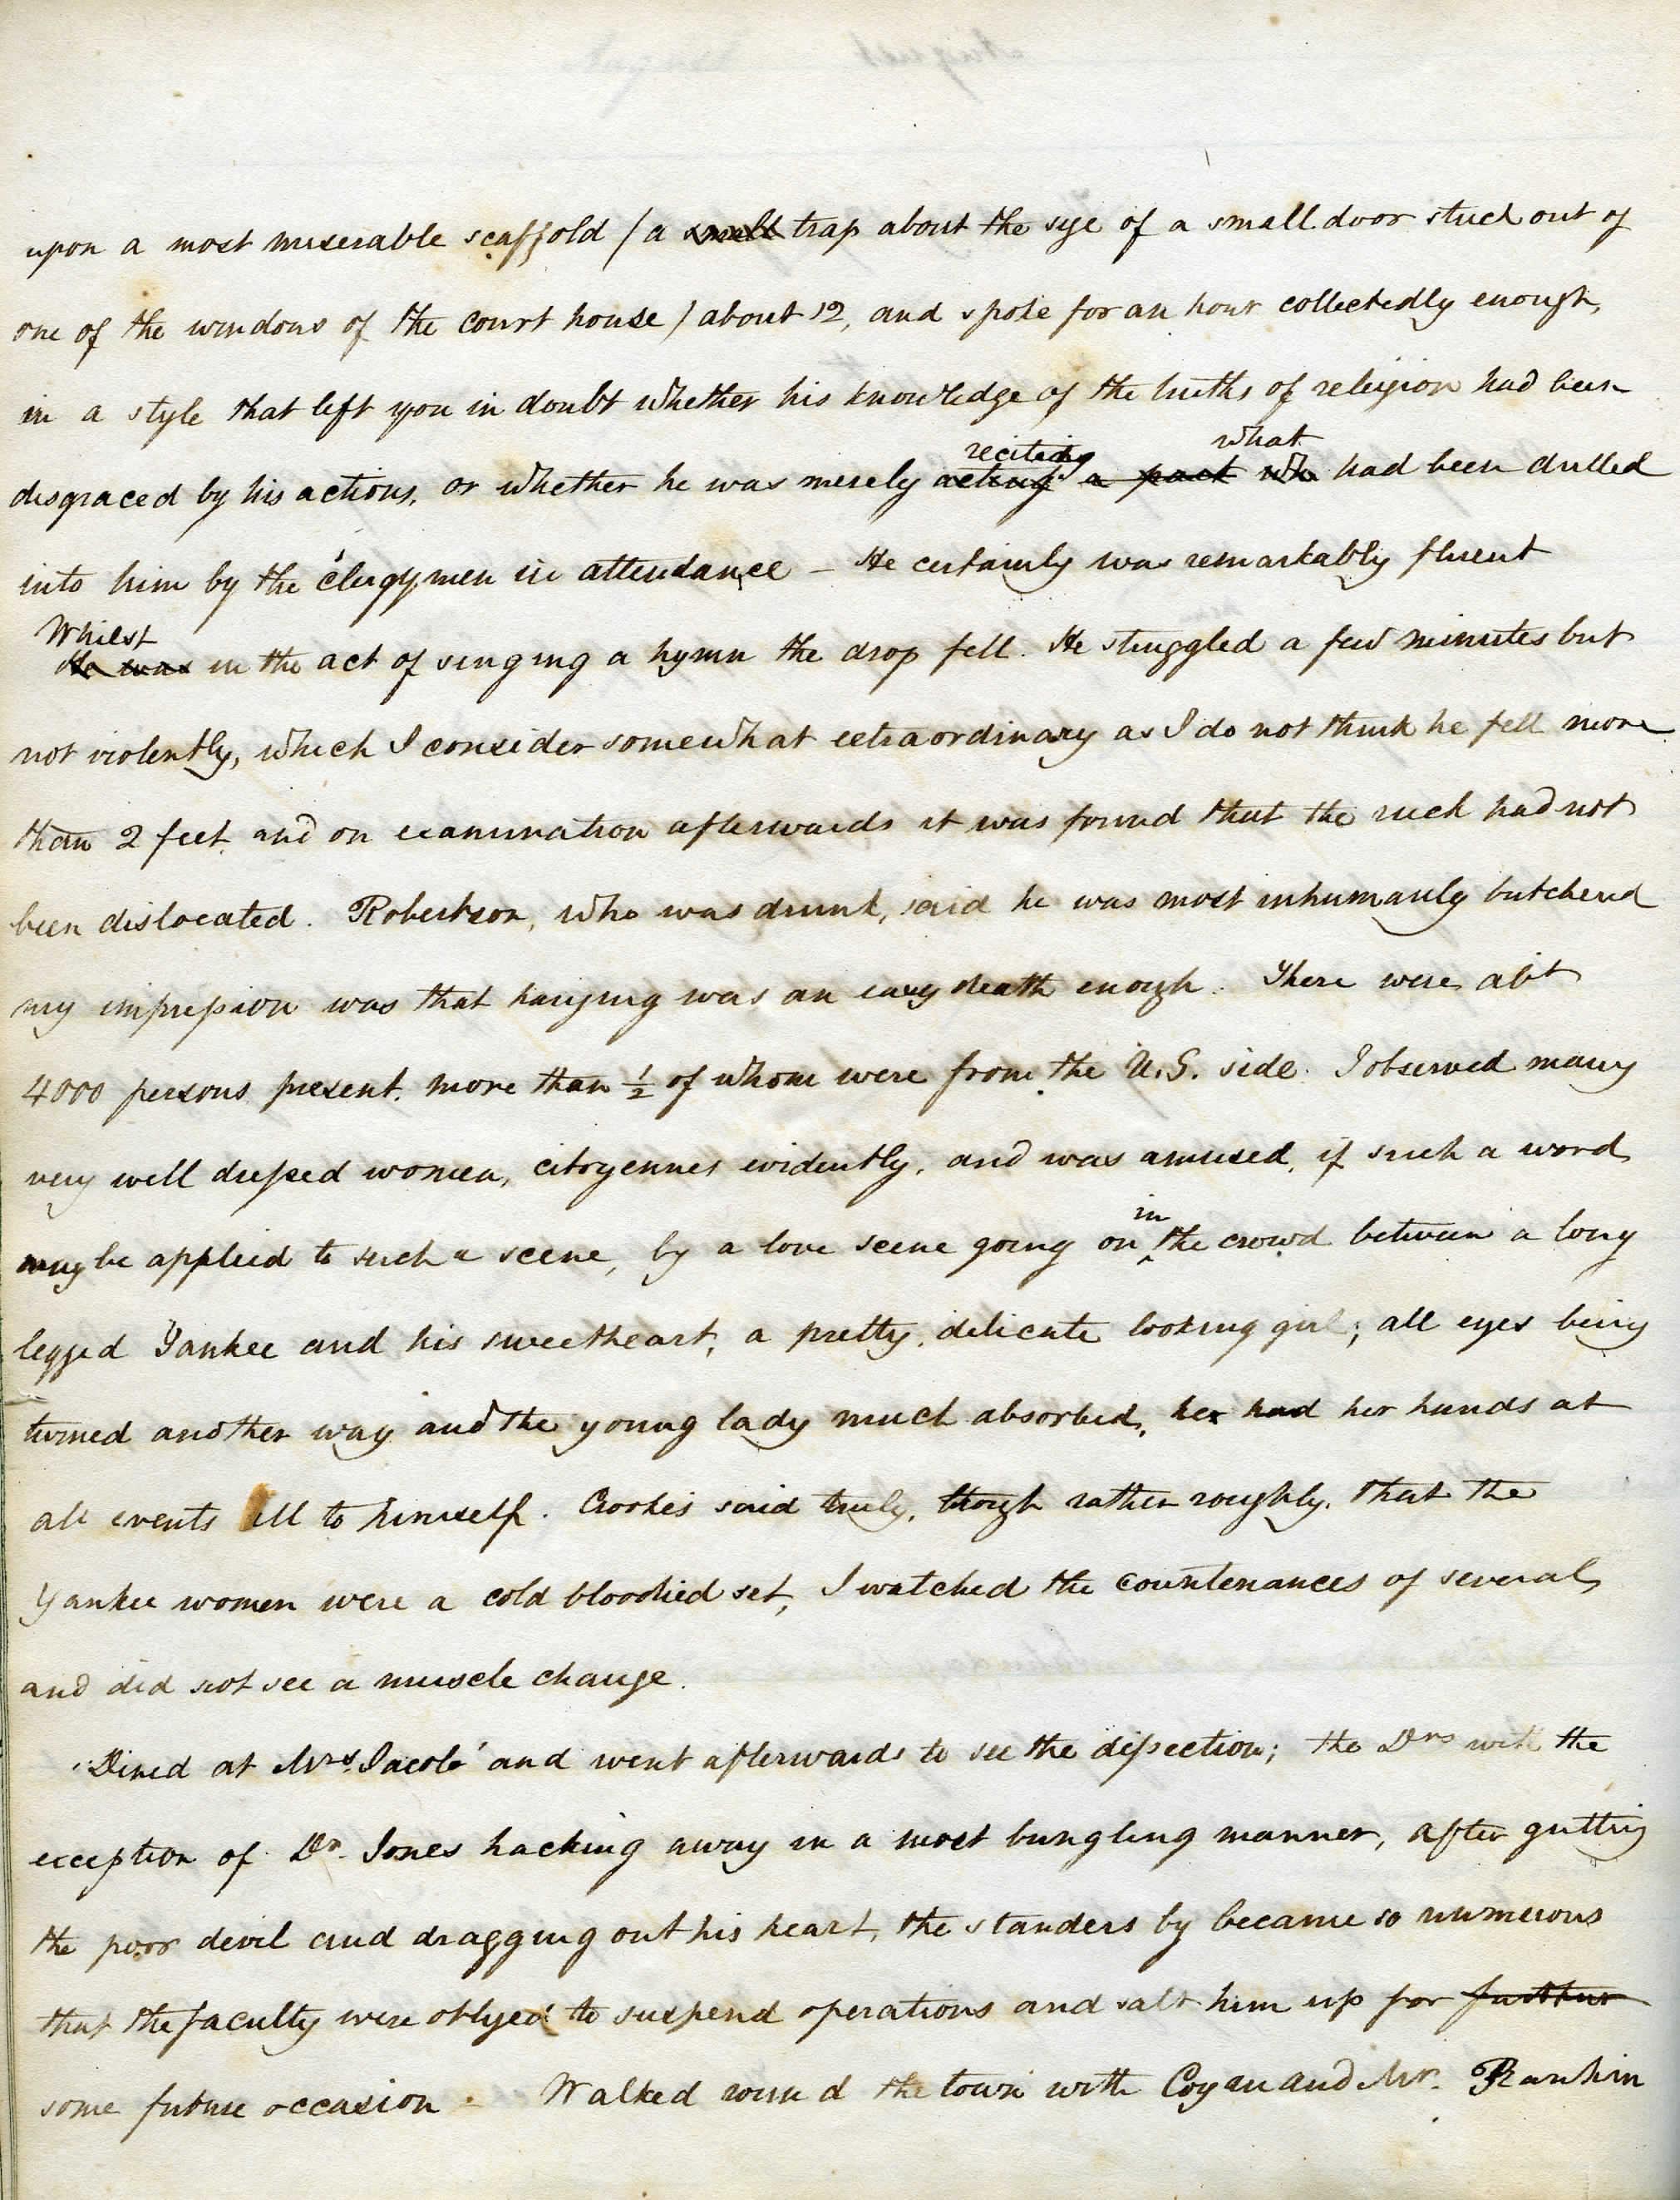 upon a most miserable scaffold / a small trap about the size of a small door stuck out of
one of the windows of the court house / about 12, and spoke for an hour collectedly enough,
in a style that left you in doubt whether his knowledge of the truths of religion had been
reciting what
disgraced by his actions, or whether he was merely acting a part wh had been drilled
into him by the clergymen in attendance – He certainly was remarkably fluent
Whilst
He was in the act of singing a hymn the drop fell. He struggled a few minutes but
not violently, which I consider somewhat extraordinary as I do not think he fell more
than 2 feet and on examination afterwards it was found that the neck had not
been dislocated. Robertson, who was drunk, said he was most inhumanly butchered
my impression was that hanging was an easy death enough. There were abt
4000 persons present, more than ½ of whom were from the U.S. side. I observed many
very well dressed women, citoyennes evidently, and was amused, if such a word
in
may be applied to such a scene, by a love scene going on ^ the crowd between a long
legged Yankee and his sweetheart, a pretty, delicate looking girl; all eyes being
turned another way and the young lady much absorbed, he had her hands at
all events all to himself. Crooks said truly, though rather roughly, that the
Yankee women were a cold bloodied set, I watched the countenances of several,
and did not see a muscle change.
Dined at Mrs. Jacobs' and went afterwards to see the dissection; the Drs with the
exception of Dr. Jones hacking away in a most bungling manner, after gutting
the poor devil and dragging out his heart, the standers by became so numerous
that the faculty were obliged to suspend operations and salt him up for further
some future occasion. Walked round the town with and Mr. Rankin